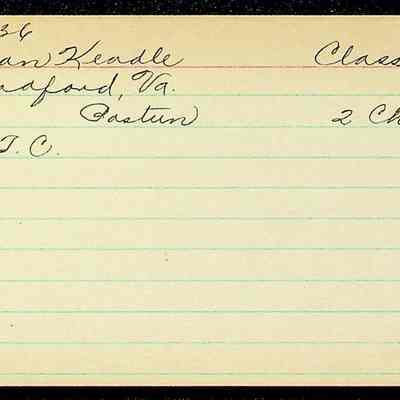 36
an Keadle Class
adford, Va.
Eastern 2 Ch
T. C.